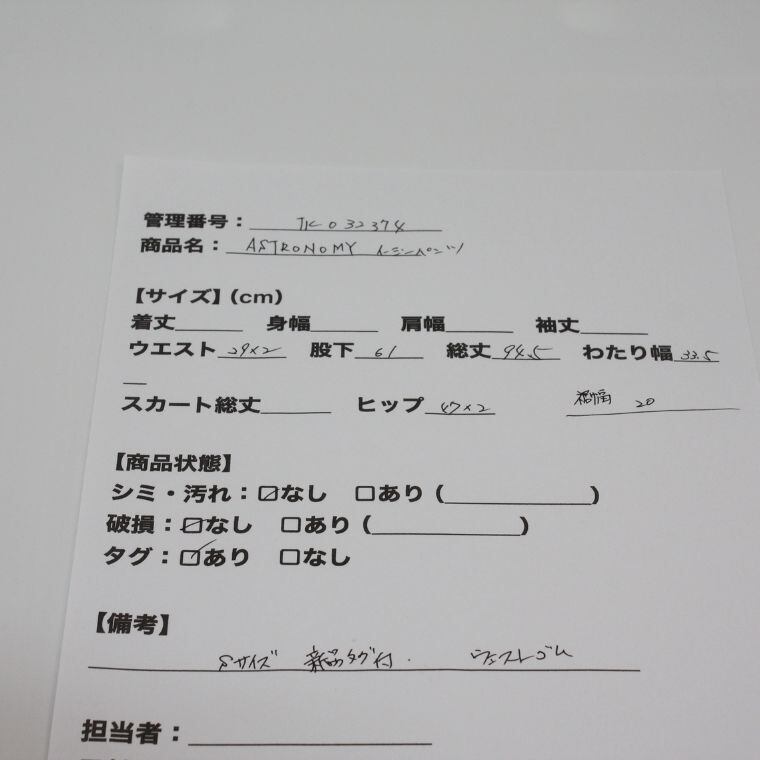 管理番号： TK032374
商品名： ASTRONOMY トレーニングパンツ
【サイズ】(cm)
着丈______ 身幅______ 肩幅______ 袖丈______
ウエスト 29×2 股下 61 総丈 94.5 わたり幅 33.5
スカート総丈______ ヒップ 47×2 裾幅 20
【商品状態】
シミ・汚れ：☑なし □あり（____________）
破損：☑なし □あり（____________）
タグ：☑あり □なし
【備考】
Sサイズ 新品タグ付. ウエストゴム
担当者：____________